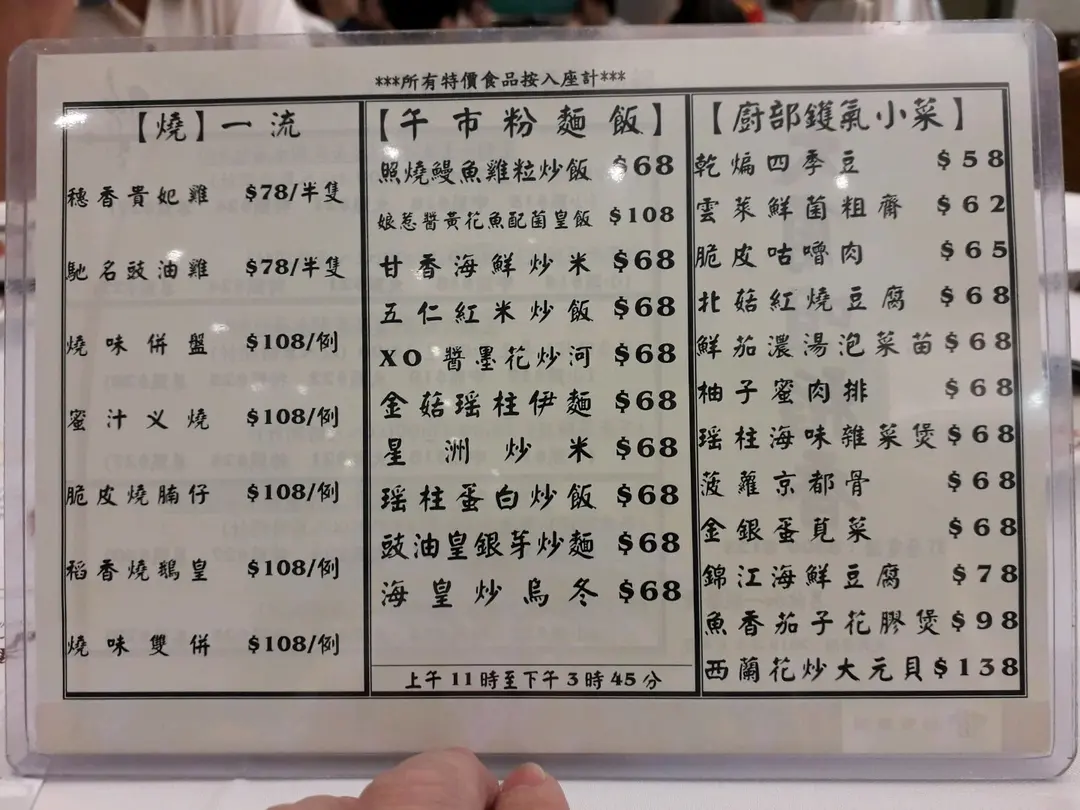 ***所有特價食品按入座計***
【燒】一流
穗香貴妃雞 $78/半隻
馳名豉油雞 $78/半隻
燒味併盤 $108/例
蜜汁义燒 $108/例
脆皮燒腩仔 $108/例
稻香燒鵝皇 $108/例
燒味雙併 $108/例
【午市粉麵飯】
照燒鰻魚雞粒炒飯 $68
娘惹醬黃花魚配菌皇飯 $108
甘香海鮮炒米 $68
五仁紅米炒飯 $68
XO 醬墨花炒河 $68
金菇瑶柱伊麵 $68
星洲炒米 $68
瑶柱蛋白炒飯 $68
豉油皇銀芽炒麵 $68
海皇炒烏冬 $68
上午11時至下午3時45分
【廚部鑊氣小菜】
乾煸四季豆 $58
雲萊鮮菌粗齋 $62
脆皮咕嚕肉 $65
北菇紅燒豆腐 $68
鮮茄濃湯泡菜苗 $68
柚子蜜肉排 $68
瑶柱海味雜菜煲 $68
菠蘿京都骨 $68
金銀蛋莧菜 $68
錦江海鮮豆腐 $78
魚香茄子花膠煲 $98
西蘭花炒大元貝 $138